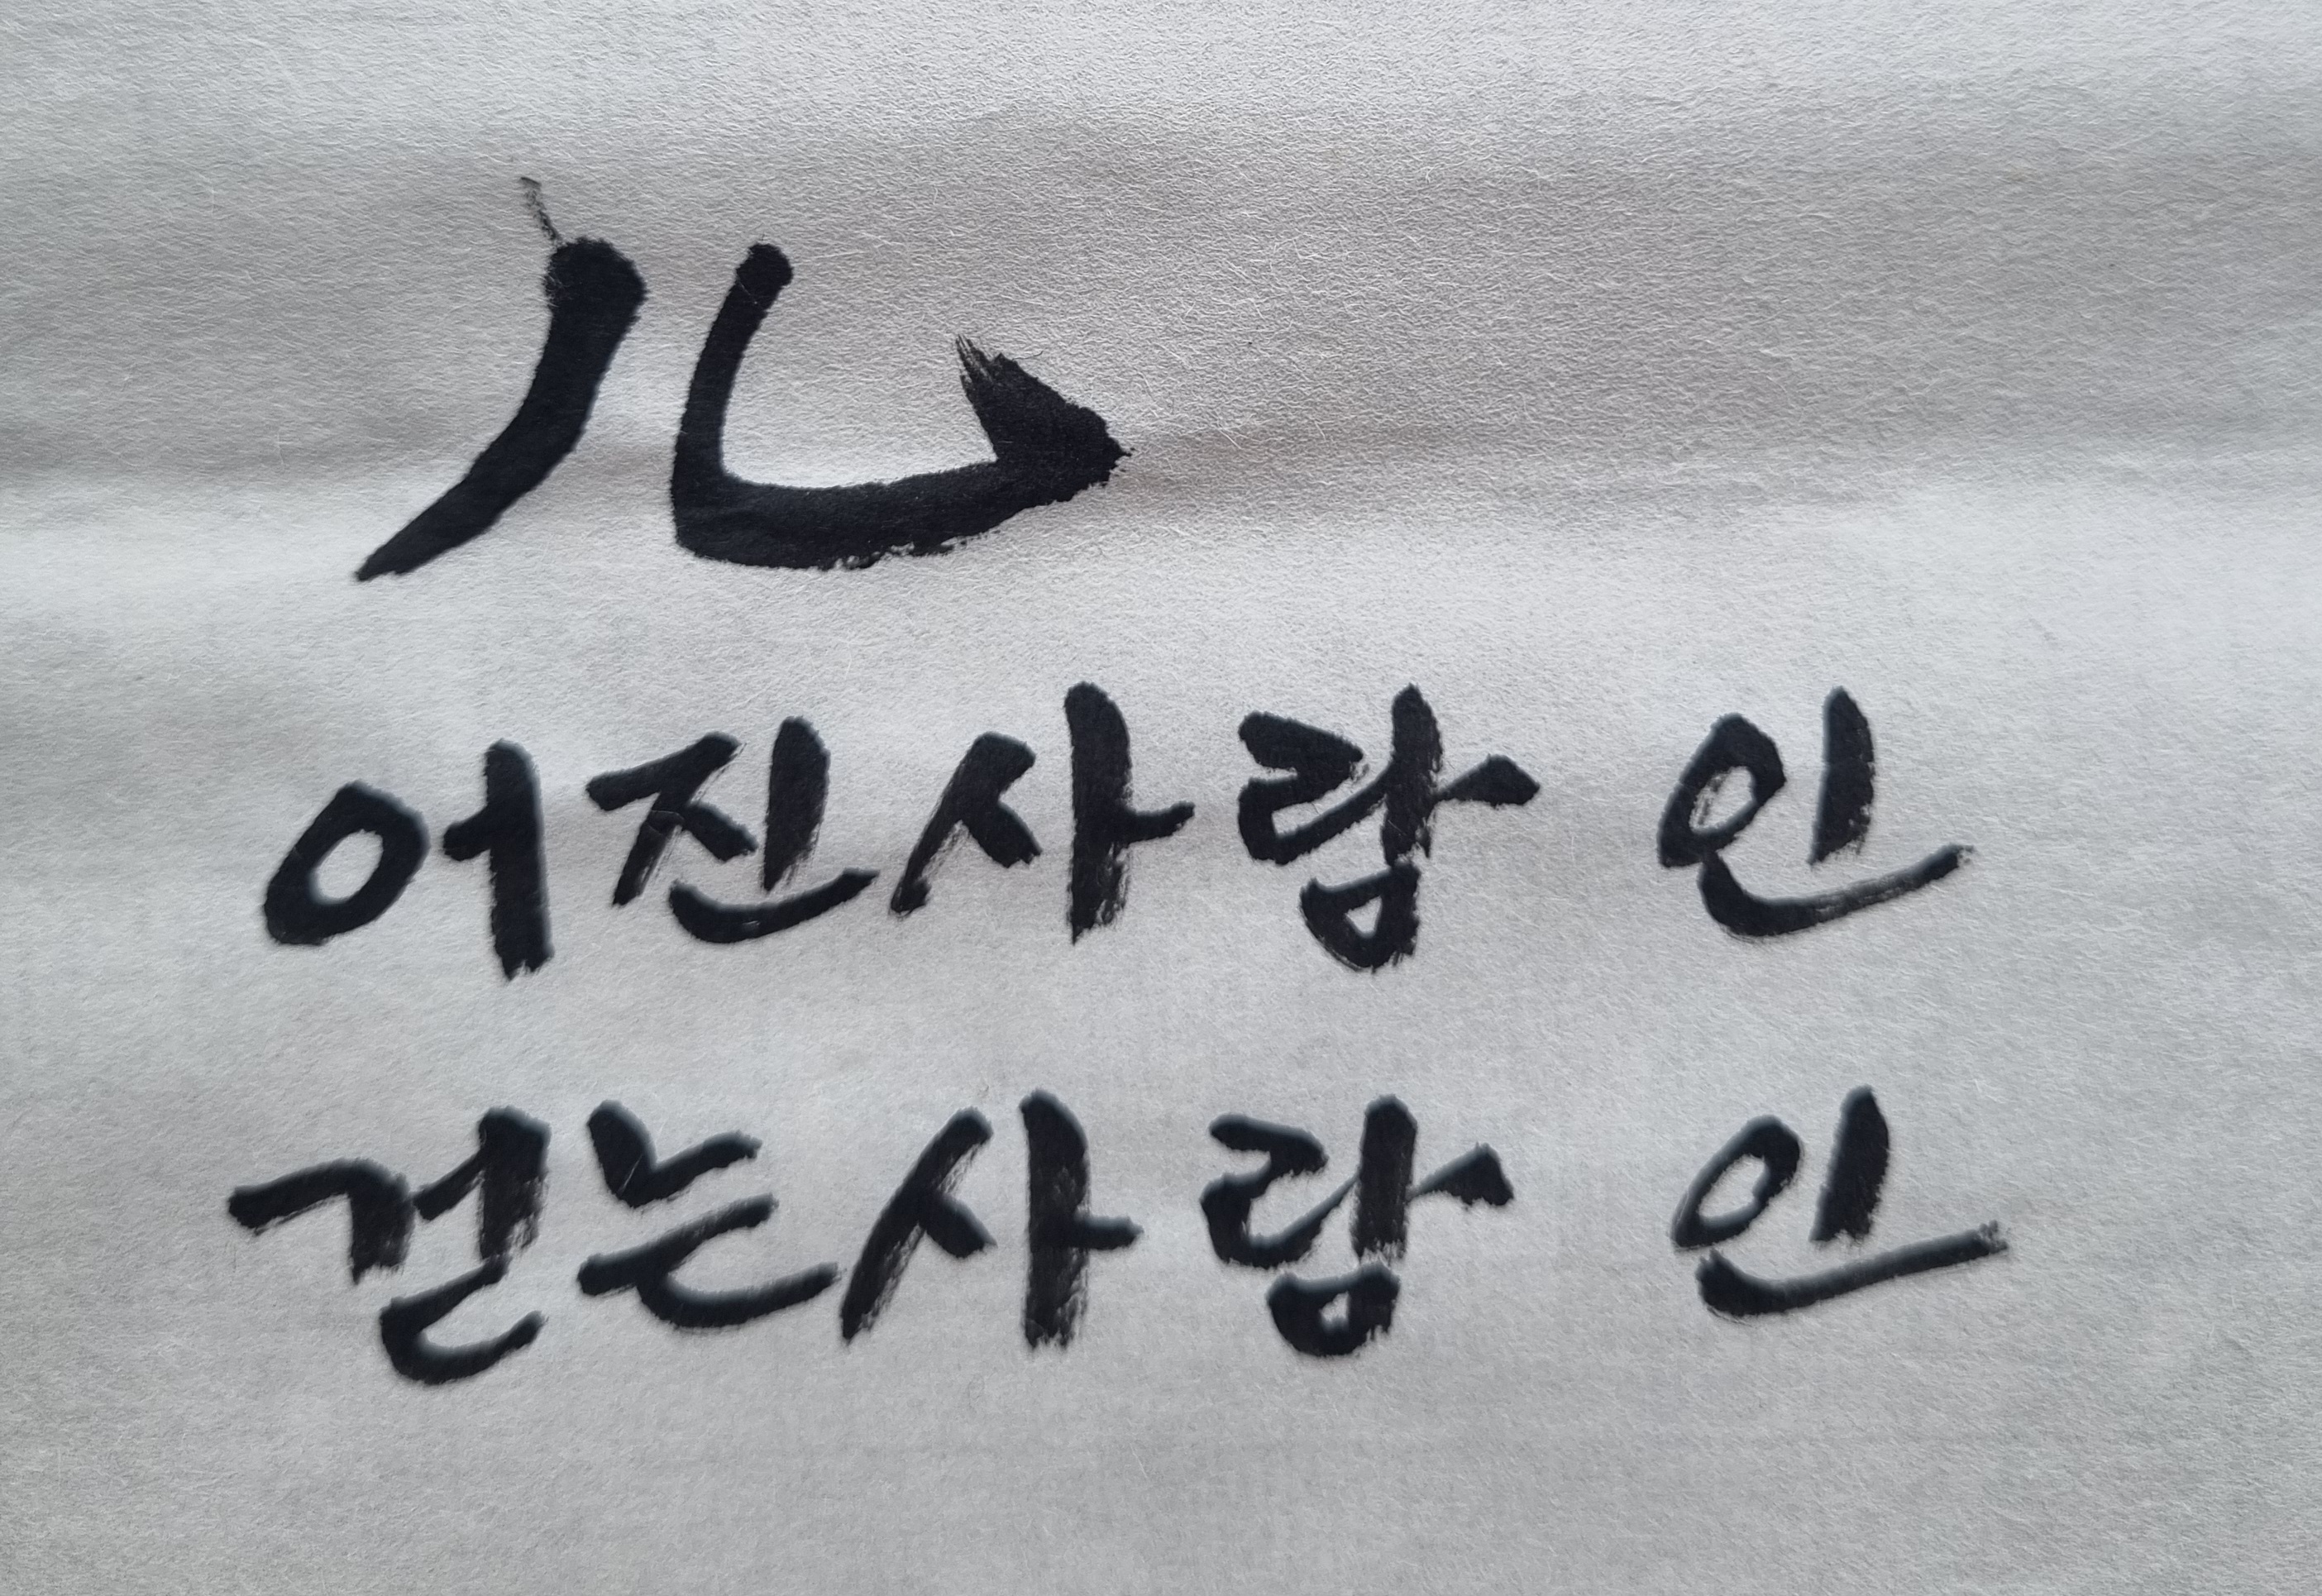 儿
어진사람 인
걷는사람 인